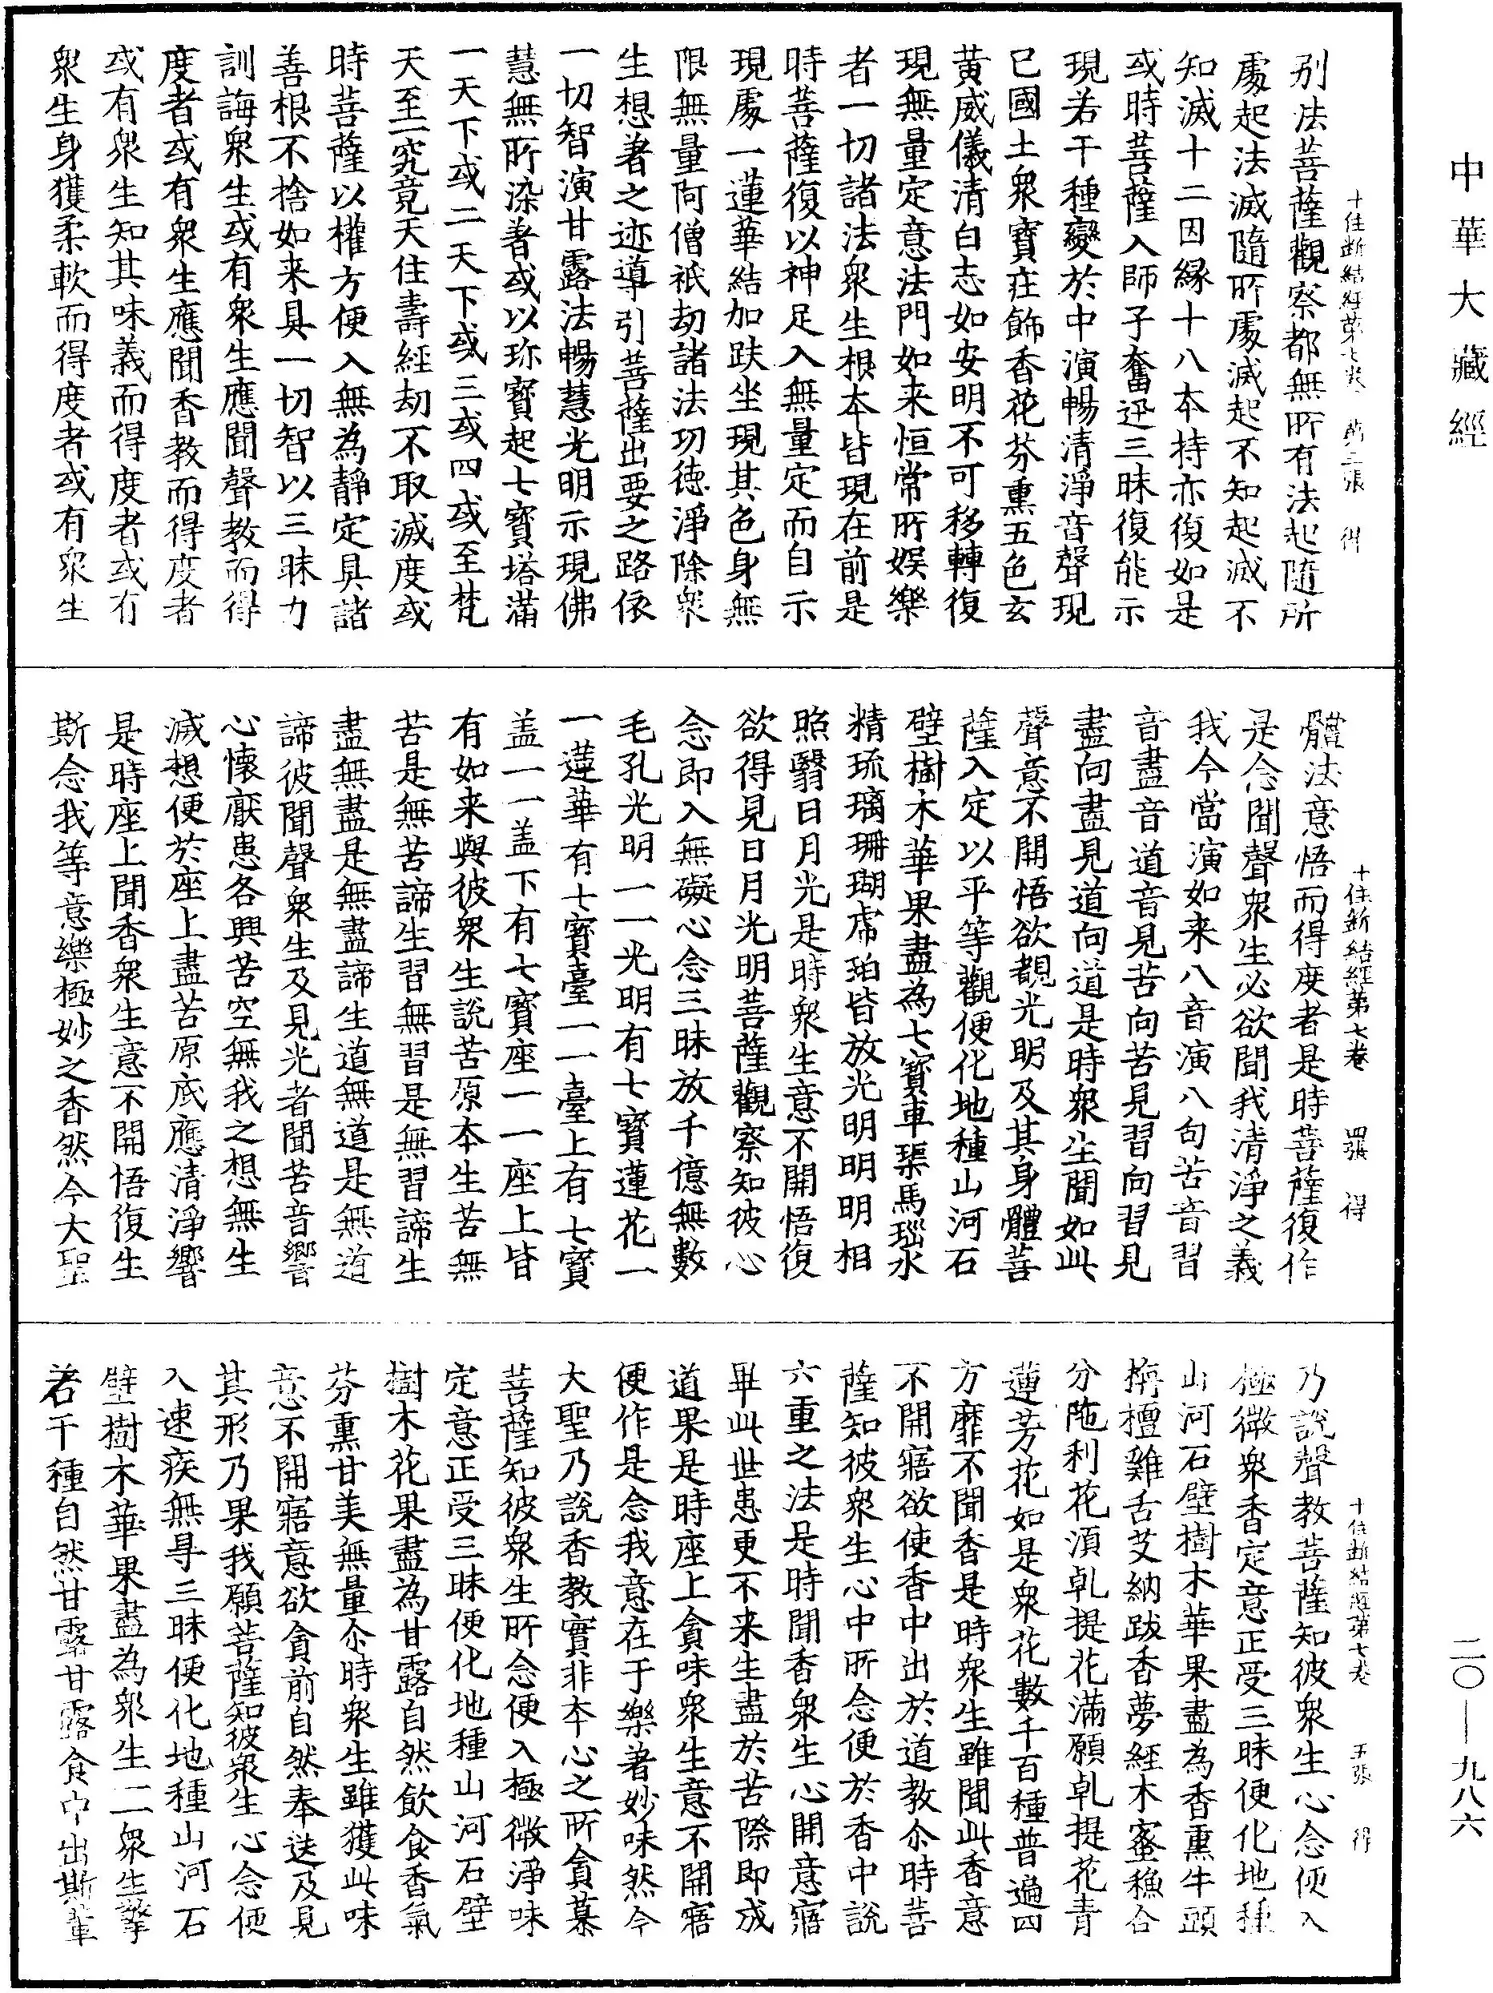 中華大藏經
二〇—九八六
十住斷結經第七卷 第三張 得
別法菩薩觀察都無所有法起隨所
處起法滅隨所處滅滅起不知起滅不
知滅十二因緣十八本持亦復如是
或時菩薩入師子奮迅三昧復能示
現若干種變於中演暢清淨音聲現
已國土眾寶莊飾香花芬熏五色玄
黃威儀清白志如安明不可移轉復
現無量定意法門如来恒常所娛樂
者一切諸法眾生根本皆現在前是
時菩薩復以神足入無量定而自示
現處一蓮華結加趺坐現其色身無
限無量阿僧祇劫諸法功德淨除眾
生想著之迹導引菩薩出要之路依
一切智演甘露法暢慧光明示現佛
慧無所染著或以珎寶起七寶塔滿
一天下或二天下或三或四或至梵
天至一究竟天住壽經劫不取滅度或
時菩薩以權方便入無為靜定具諸
善根不捨如来具一切智以三昧力
訓誨眾生或有眾生應聞聲教而得
度者或有眾生應聞香教而得度者
或有眾生知其味義而得度者或有
眾生身獲柔軟而得度者或有眾生
十住斷結經第七卷 四張 得
體法意悟而得度者是時菩薩復作
是念聞聲眾生必欲聞我清淨之義
我今當演如来八音演八句苦音習
音盡音道音見苦向苦見習向習見
盡向盡見道向道是時眾生聞如此
聲意不開悟欲覩光明及其身體菩
薩入定以平等觀便化地種山河石
壁樹木華果盡為七寶車𤦲馬瑙水
精琉璃珊瑚虎珀皆放光明明明相
照翳日月光是時眾生意不開悟復
欲得見日月光明菩薩觀察知彼心
念即入無礙心念三昧放千億無數
毛孔光明一一光明有七寶蓮花一
一蓮華有七寶臺一一臺上有七寶
盖一一盖下有七寶座一一座上皆
有如来與彼眾生說苦原本生苦無
苦是無苦諦生習無習是無習諦生
盡無盡是無盡諦生道無道是無道
諦彼聞聲眾生及見光者聞苦音響
心懷厭患各興苦空無我之想無生
滅想便於座上盡苦原底應清淨響
是時座上聞香眾生意不開悟復生
斯念我等意樂極妙之香然今大聖
十住斷結經第七卷 五張 得
乃說聲教菩薩知彼眾生心念便入
極微眾香定意正受三昧便化地種
山河石壁樹木華果盡為香熏牛頭
栴檀雞舌艾納跋香夢經木蜜穐合
分陁利花湏乹提花滿願乹提花青
蓮芳花如是眾花數千百種普遍四
方靡不聞香是時眾生雖聞此香意
不開寤欲使香中出於道教尒時菩
薩知彼眾生心中所念便於香中說
六重之法是時聞香眾生心開意寤
畢此世患更不来生盡於苦際即成
道果是時座上貪味眾生意不開寤
便作是念我意在于樂著妙味然今
大聖乃說香教實非本心之所貪慕
菩薩知彼眾生所念便入極微淨味
定意正受三昧便化地種山河石壁
樹木花果盡為甘露自然飲食香氣
芬熏甘美無量尒時眾生雖獲此味
意不開寤意欲貪前自然奉送及見
其形乃果我願菩薩知彼眾生心念便
入速疾無㝵三昧便化地種山河石
壁樹木華果盡為眾生二眾生擎
若干種自然甘露甘露食中出斯輩